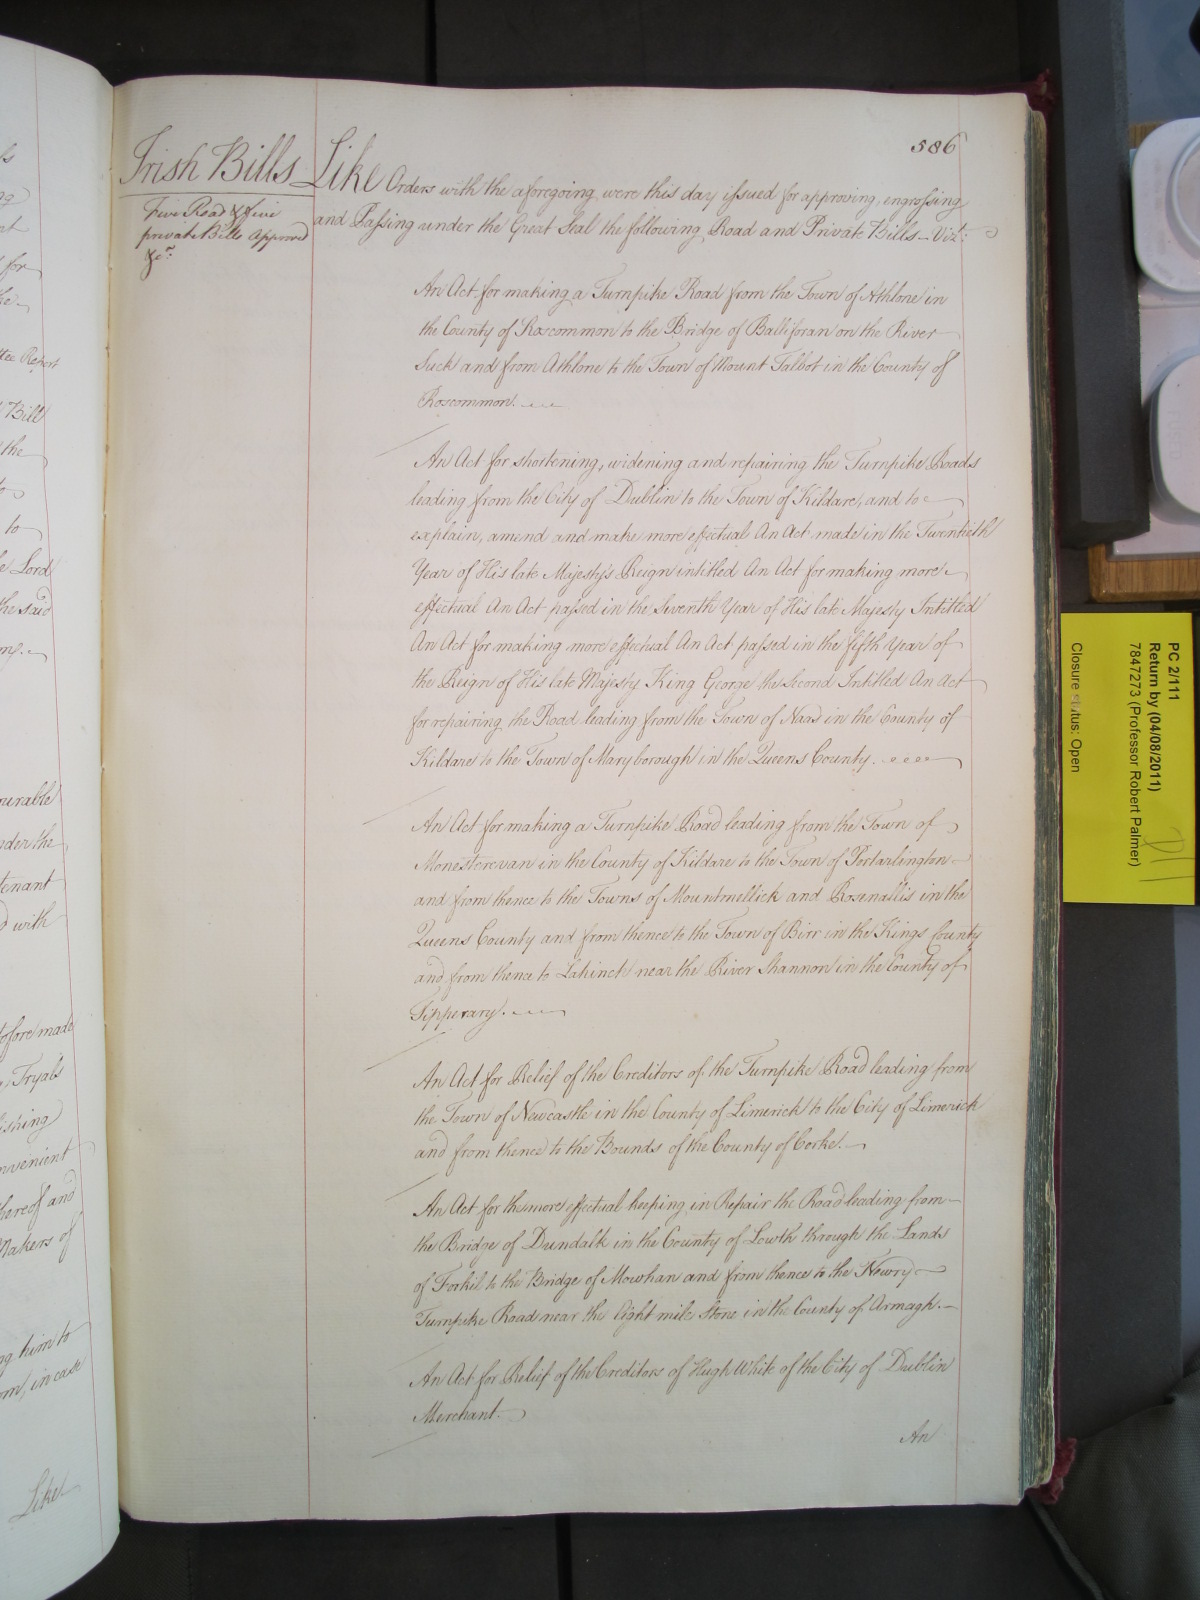 586
Irish Bills
Five Road & five
private Bills Approved
&c.a
Like Orders with the aforegoing were this day issued for approving, engrossing
and Passing under the Great Seal the following Road and Private Bills - Vizt:
An Act for making a Turnpike Road from the Town of Athlone in
the County of Roscommon to the Bridge of Balliforan on the River
Suck and from Athlone to the Town of Mount Talbot in the County of
Roscommon.
An Act for shortening, widening and repairing the Turnpike Roads
leading from the City of Dublin to the Town of Kildare, and to
explain, amend and make more effectual An Act made in the Twentieth
Year of His late Majesty's Reign intitled An Act for making more
effectual An Act passed in the Seventh Year of His late Majesty Intitled
An Act for making more effectual An Act passed in the fifth Year of
the Reign of His late Majesty King George the Second Intitled An Act
for repairing the Road leading from the Town of Naas in the County of
Kildare to the Town of Maryborough in the Queens County.
An Act for making a Turnpike Road leading from the Town of
Monesterevan in the County of Kildare to the Town of Portarlington
and from thence to the Towns of Mountmellick and Rosenallis in the
Queens County and from thence to the Town of Birr in the Kings County
and from thence to Lahinch near the River Shannon in the County of
Tipperary.
An Act for Relief of the Creditors of the Turnpike Road leading from
the Town of Newcastle in the County of Limerick to the City of Limerick
and from thence to the Bounds of the County of Corke.
An Act for the more effectual keeping in Repair the Road leading from
the Bridge of Dundalk in the County of Lowth through the Lands
of Forkil to the Bridge of Mowhan and from thence to the Newry
Turnpike Road near the Eight mile Stone in the County of Armagh.
An Act for Relief of the Creditors of Hugh White of the City of Dublin
Merchant.
An
for
Report
Bill
the
to
Lord
the said
under the
with
made
Tryals
thereof and
Makers of
him to
in case
Like
PC 2/111
Return by (04/08/2011)
7847273 (Professor Robert Palmer)
Closure status: Open